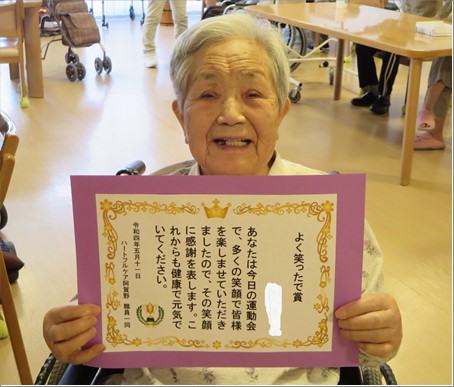 よく笑ったで賞
あなたは今日の運動会
で、多くの笑顔で皆様
を楽しませていただき
ましたので、その笑顔
に感謝を表します。こ
れからも健康で元気で
いてください。
令和四年五月十一日
ハートフルケア阿賀野 職員一同